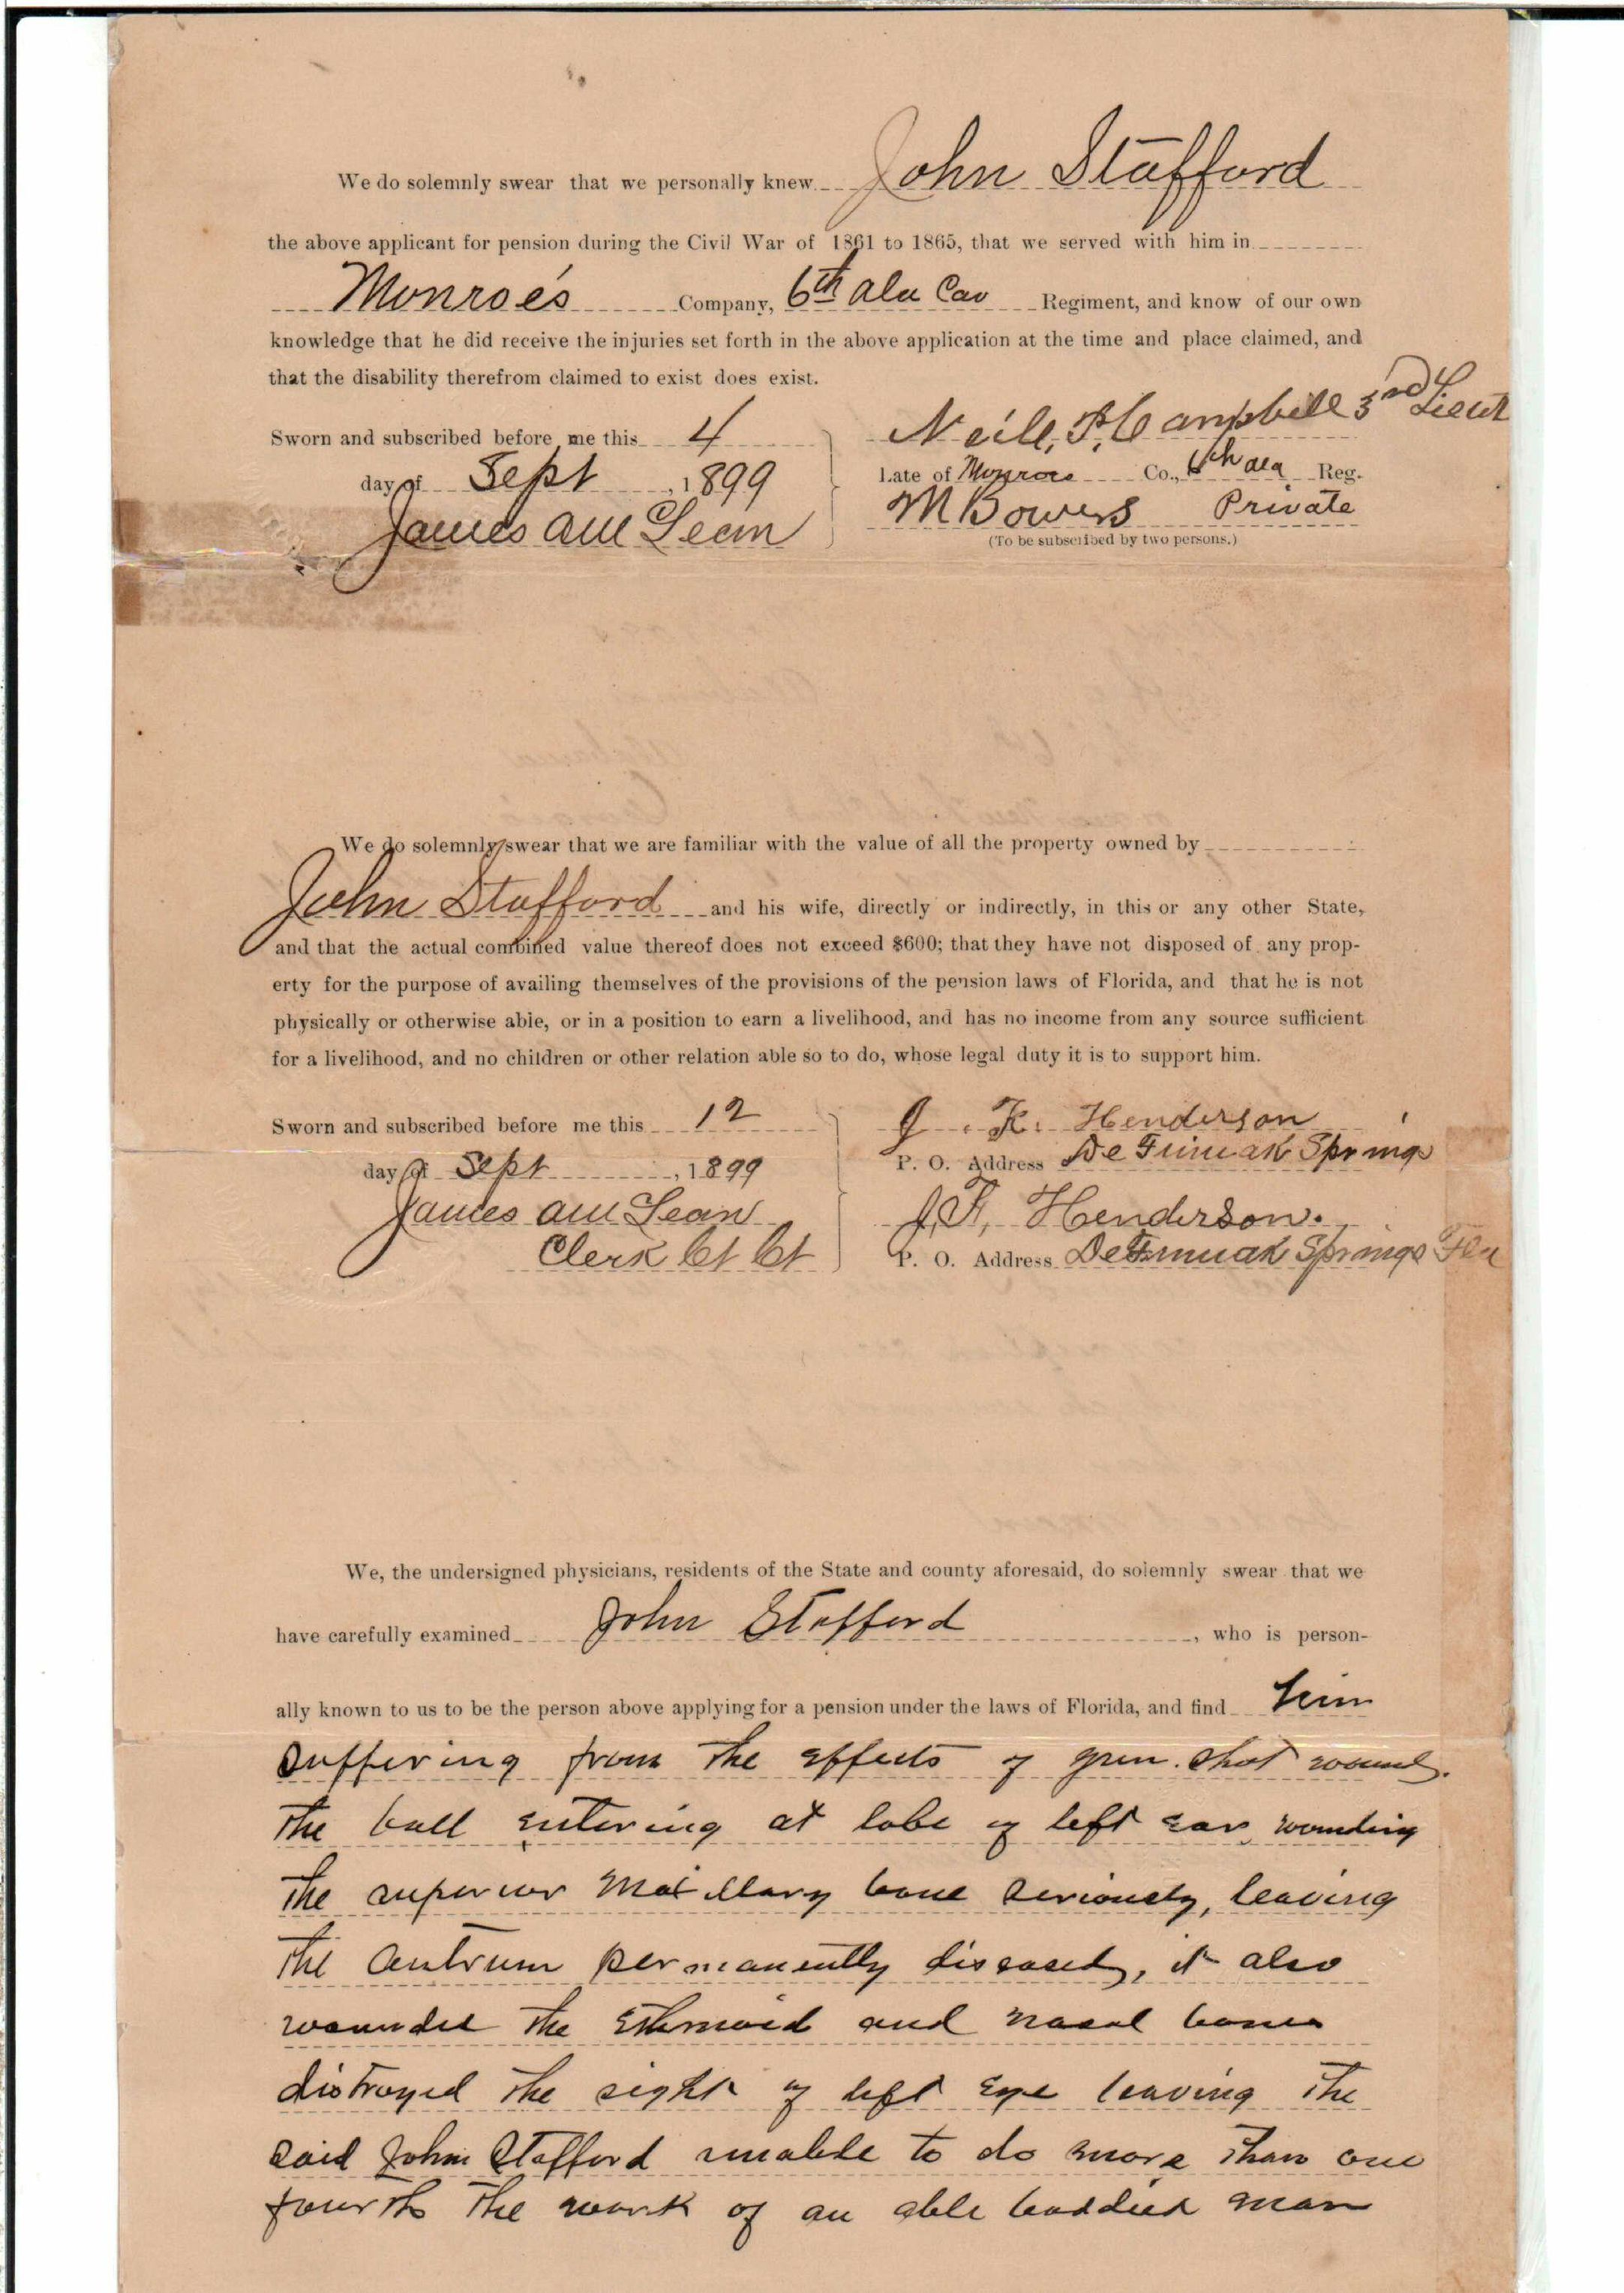 We do solemnly swear that we personally knew John Stafford
the above applicant for pension during the Civil War of 1861 to 1865, that we served with him in
Monroe's Company, 6th Ala Cav Regiment, and know of our own
knowledge that he did receive the injuries set forth in the above application at the time and place claimed, and
that the disability therefrom claimed to exist does exist.
Sworn and subscribed before me this 4
day of Sept, 1899
James
Neill, P. Campbell 3rd Lieut
Late of Monroes Co., 6th ala Reg.
M Bowers Private
(To be subscribed by two persons.)
We do solemnly swear that we are familiar with the value of all the property owned by
John Stafford and his wife, directly or indirectly, in this or any other State,
and that the actual combined value thereof does not exceed $600; that they have not disposed of any prop-
erty for the purpose of availing themselves of the provisions of the pension laws of Florida, and that he is not
physically or otherwise able, or in a position to earn a livelihood, and has no income from any source sufficient
for a livelihood, and no children or other relation able so to do, whose legal duty it is to support him.
Sworn and subscribed before me this 12
day of Sept, 1899
James
Clerk Ct Ct
J. K. Henderson
P. O. Address De Funiak Springs
Henderson.
P. O. Address DeFuniak Springs Fla
We, the undersigned physicians, residents of the State and county aforesaid, do solemnly swear that we
have carefully examined John Stafford, who is person-
ally known to us to be the person above applying for a pension under the laws of Florida, and find him
suffering from the effects of gun. shot wound.
The ball entering at lobe of left ear wounding
The superior Maxillary bone seriously, leaving
The antrum permanently diseased, it also
wounded the Ethmoid and nasal bones
distroyed the sight of left eye leaving the
said John Stafford unable to do more than one
fourth the work of an able boddied man